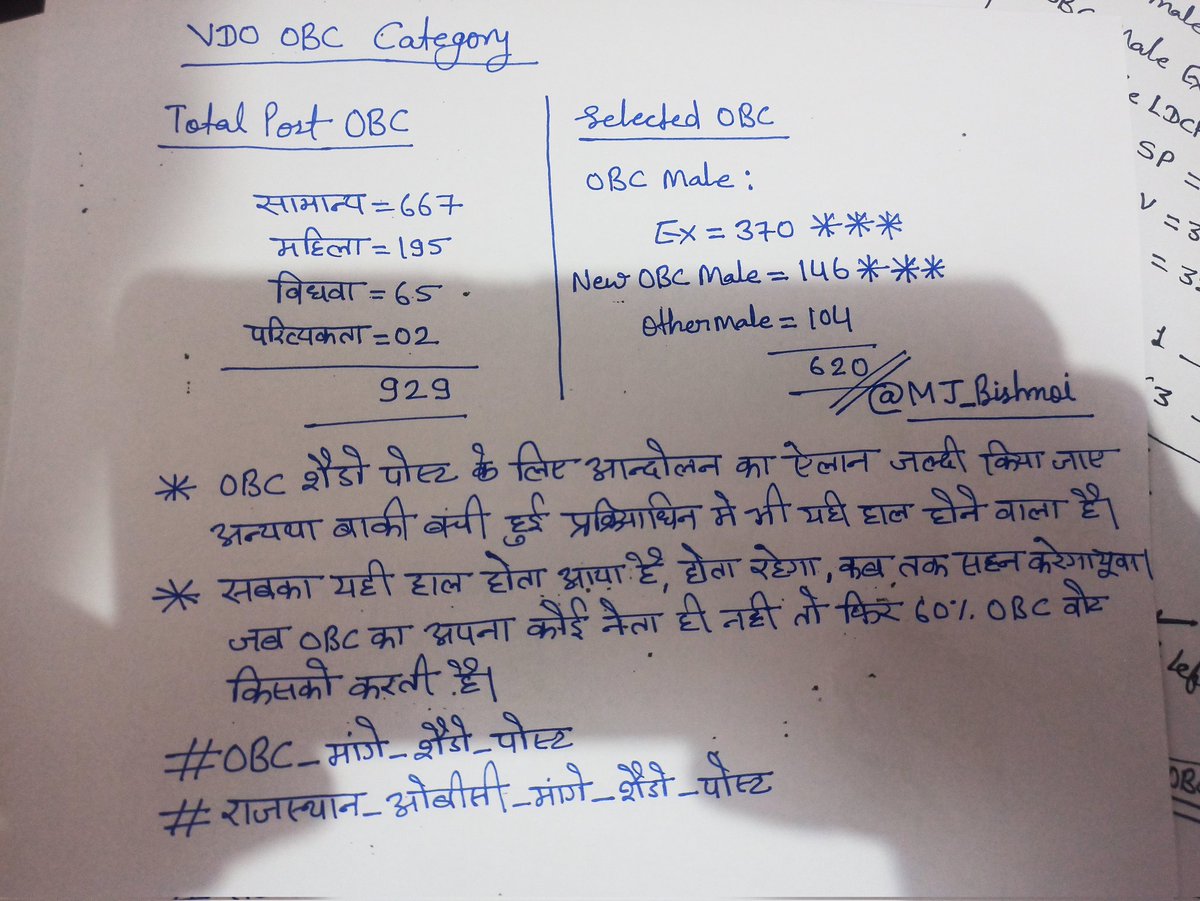 VDO OBC Category
Total Post OBC
सामान्य = 667
महिला = 195
विधवा = 65
परित्यकता = 02
929
Selected OBC
OBC Male :
Ex = 370 ***
New OBC Male = 146 ***
Other male = 104
620
@MJ_Bishnoi
* OBC शैडो पोस्ट के लिए आन्दोलन का ऐलान जल्दी किया जाए
अन्यथा बाकी बची हुई प्रक्रियाधिन मे भी यही हाल होने वाला है।
* सबका यही हाल होता आया है, होता रहेगा, कब तक सहन करेगा युवा।
जब OBC का अपना कोई नेता ही नही तो फिर 60% OBC वोट
किसको करती है।
#OBC_मांगे_शैडो_पोस्ट
#राजस्थान_ओबीसी_मांगे_शैडो_पोस्ट
male
male Ex
e LDC
SP =
V = 3
= 3
1
3
Lef
OBC